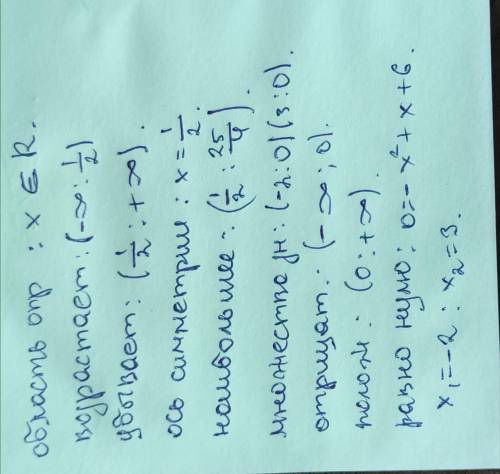 область опр : x ∈ R.
возрастает: (-∞ : 1/2)
убывает: (1/2 : +∞).
ось симметрии : x = 1/2.
наибольшее : (1/2 : 25/4).
множество : (-2 : 0) (3 : 0).
отрицат. : (-∞ ; 0).
полож : (0 : +∞).
равно нулю : 0 = -x² + x + 6.
x₁ = -2 : x₂ = 3.